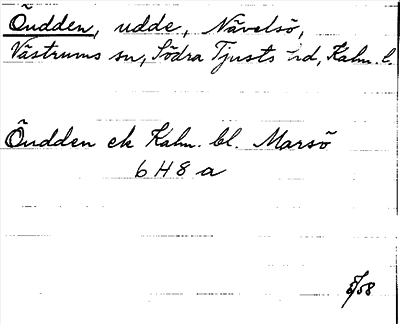 Öudden, udde, Nävelsö,
Västrums sn, Södra Tjusts hd, Kalm. l.
Öudden ek Kalm. bl. Marsö
6 H 8 a
8/58